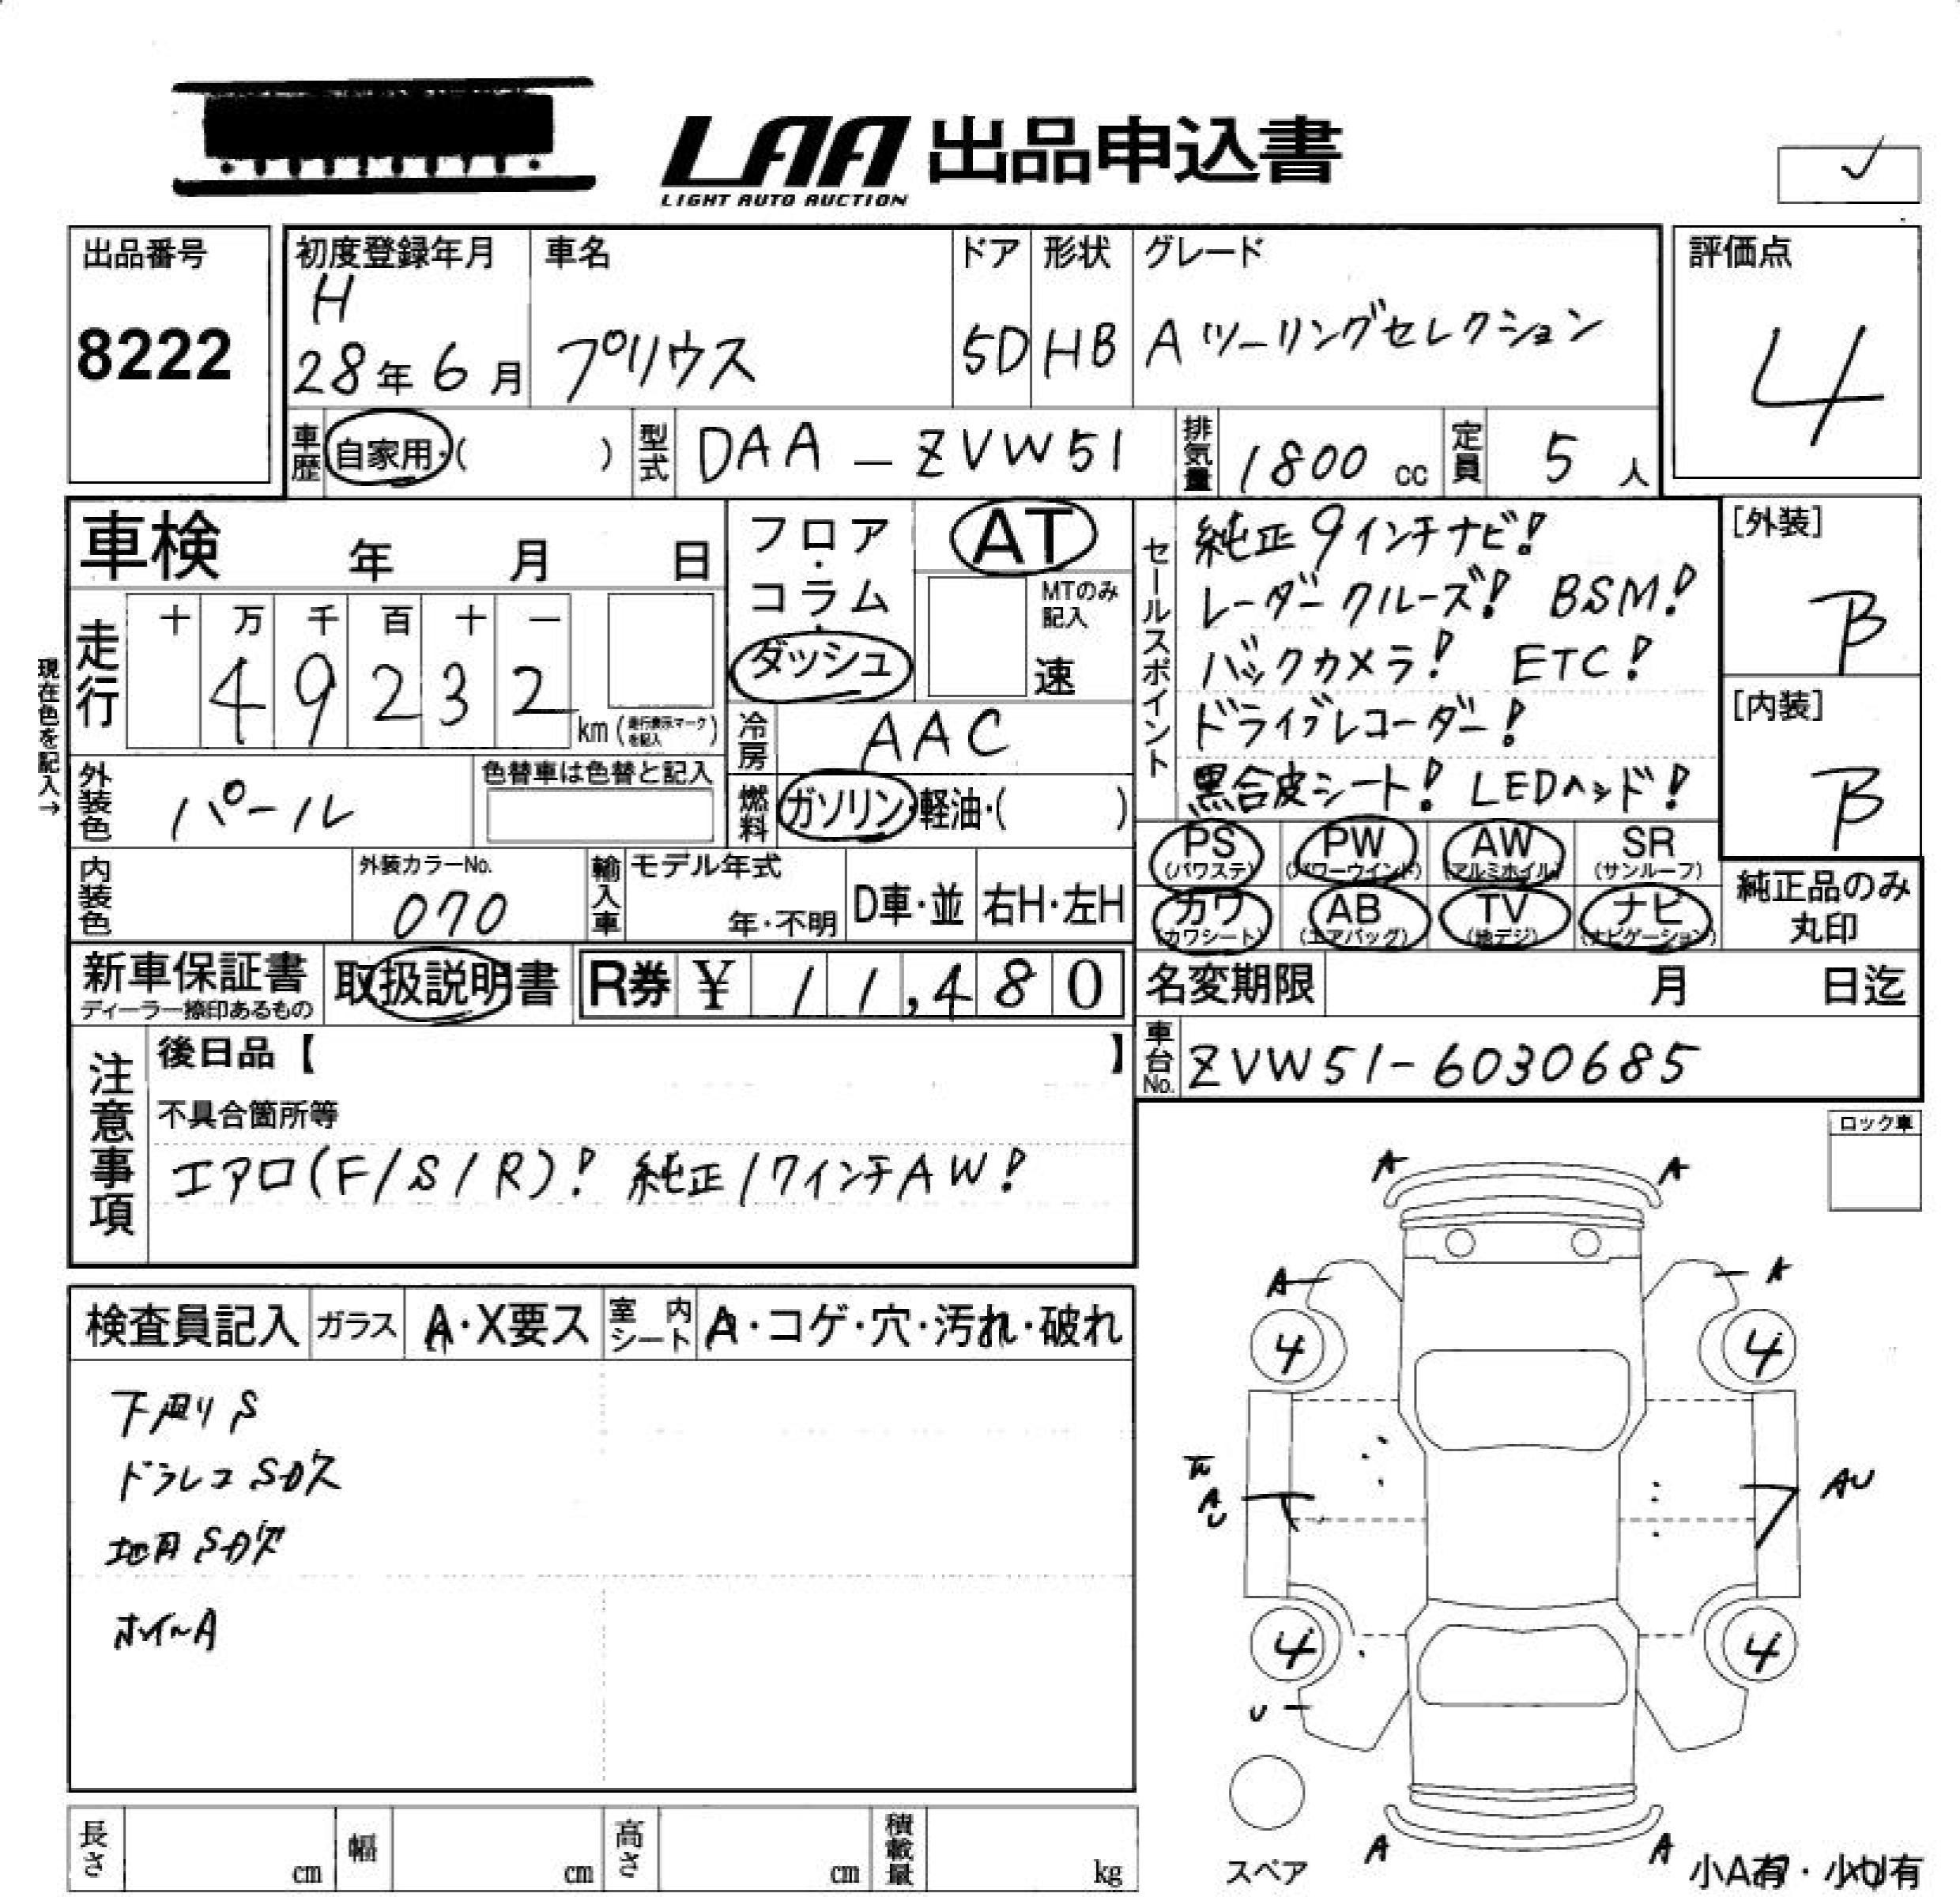 LAA 出品申込書
LIGHT AUTO AUCTION
出品番号
8222
初度登録年月
H
28年6月
車名
プリウス
ドア
5D
形状
HB
グレード
Aツーリングセレクション
評価点
4
車歴
自家用・( )
型式
DAA-ZVW51
排気量
1800 cc
定員
5 人
車検 年 月 日
フロア・コラム・ダッシュ
AT
MTのみ記入
速
現在色を記入→
走行
十 万 千 百 十 一
4 9 2 3 2
km (走行表示マークを記入)
冷房
AAC
燃料
ガソリン・軽油・( )
外装色
パール
色替車は色替と記入
内装色
外装カラーNo.
070
輸入車
モデル年式
年・不明
D車・並
右H・左H
セールスポイント
純正9インチナビ!
レーダークルーズ! BSM!
バックカメラ! ETC!
ドライブレコーダー!
黒合皮シート! LEDヘッド!
[外装]
B
[内装]
B
PS (パワステ)
PW (パワーウインド)
AW (アルミホイル)
SR (サンルーフ)
カワ (カワシート)
AB (エアバッグ)
TV (地デジ)
ナビ (ナビゲーション)
純正品のみ丸印
新車保証書
ディーラー捺印あるもの
取扱説明書
R券 ¥ 11,480
名変期限 月 日迄
車台No.
ZVW51-6030685
注意事項
後日品【 】
不具合箇所等
エアロ(F/S/R)! 純正17インチAW!
ロック車
検査員記入
ガラス
A・X要ス
室内シート
A・コゲ・穴・汚れ・破れ
下廻りS
ドラレコSD欠
地図SD欠
ホイールA
A A
A A
4 4
A
U
AU
4 4
U
A A
スペア
小A有・小U有
長さ cm
幅 cm
高さ cm
積載量 kg